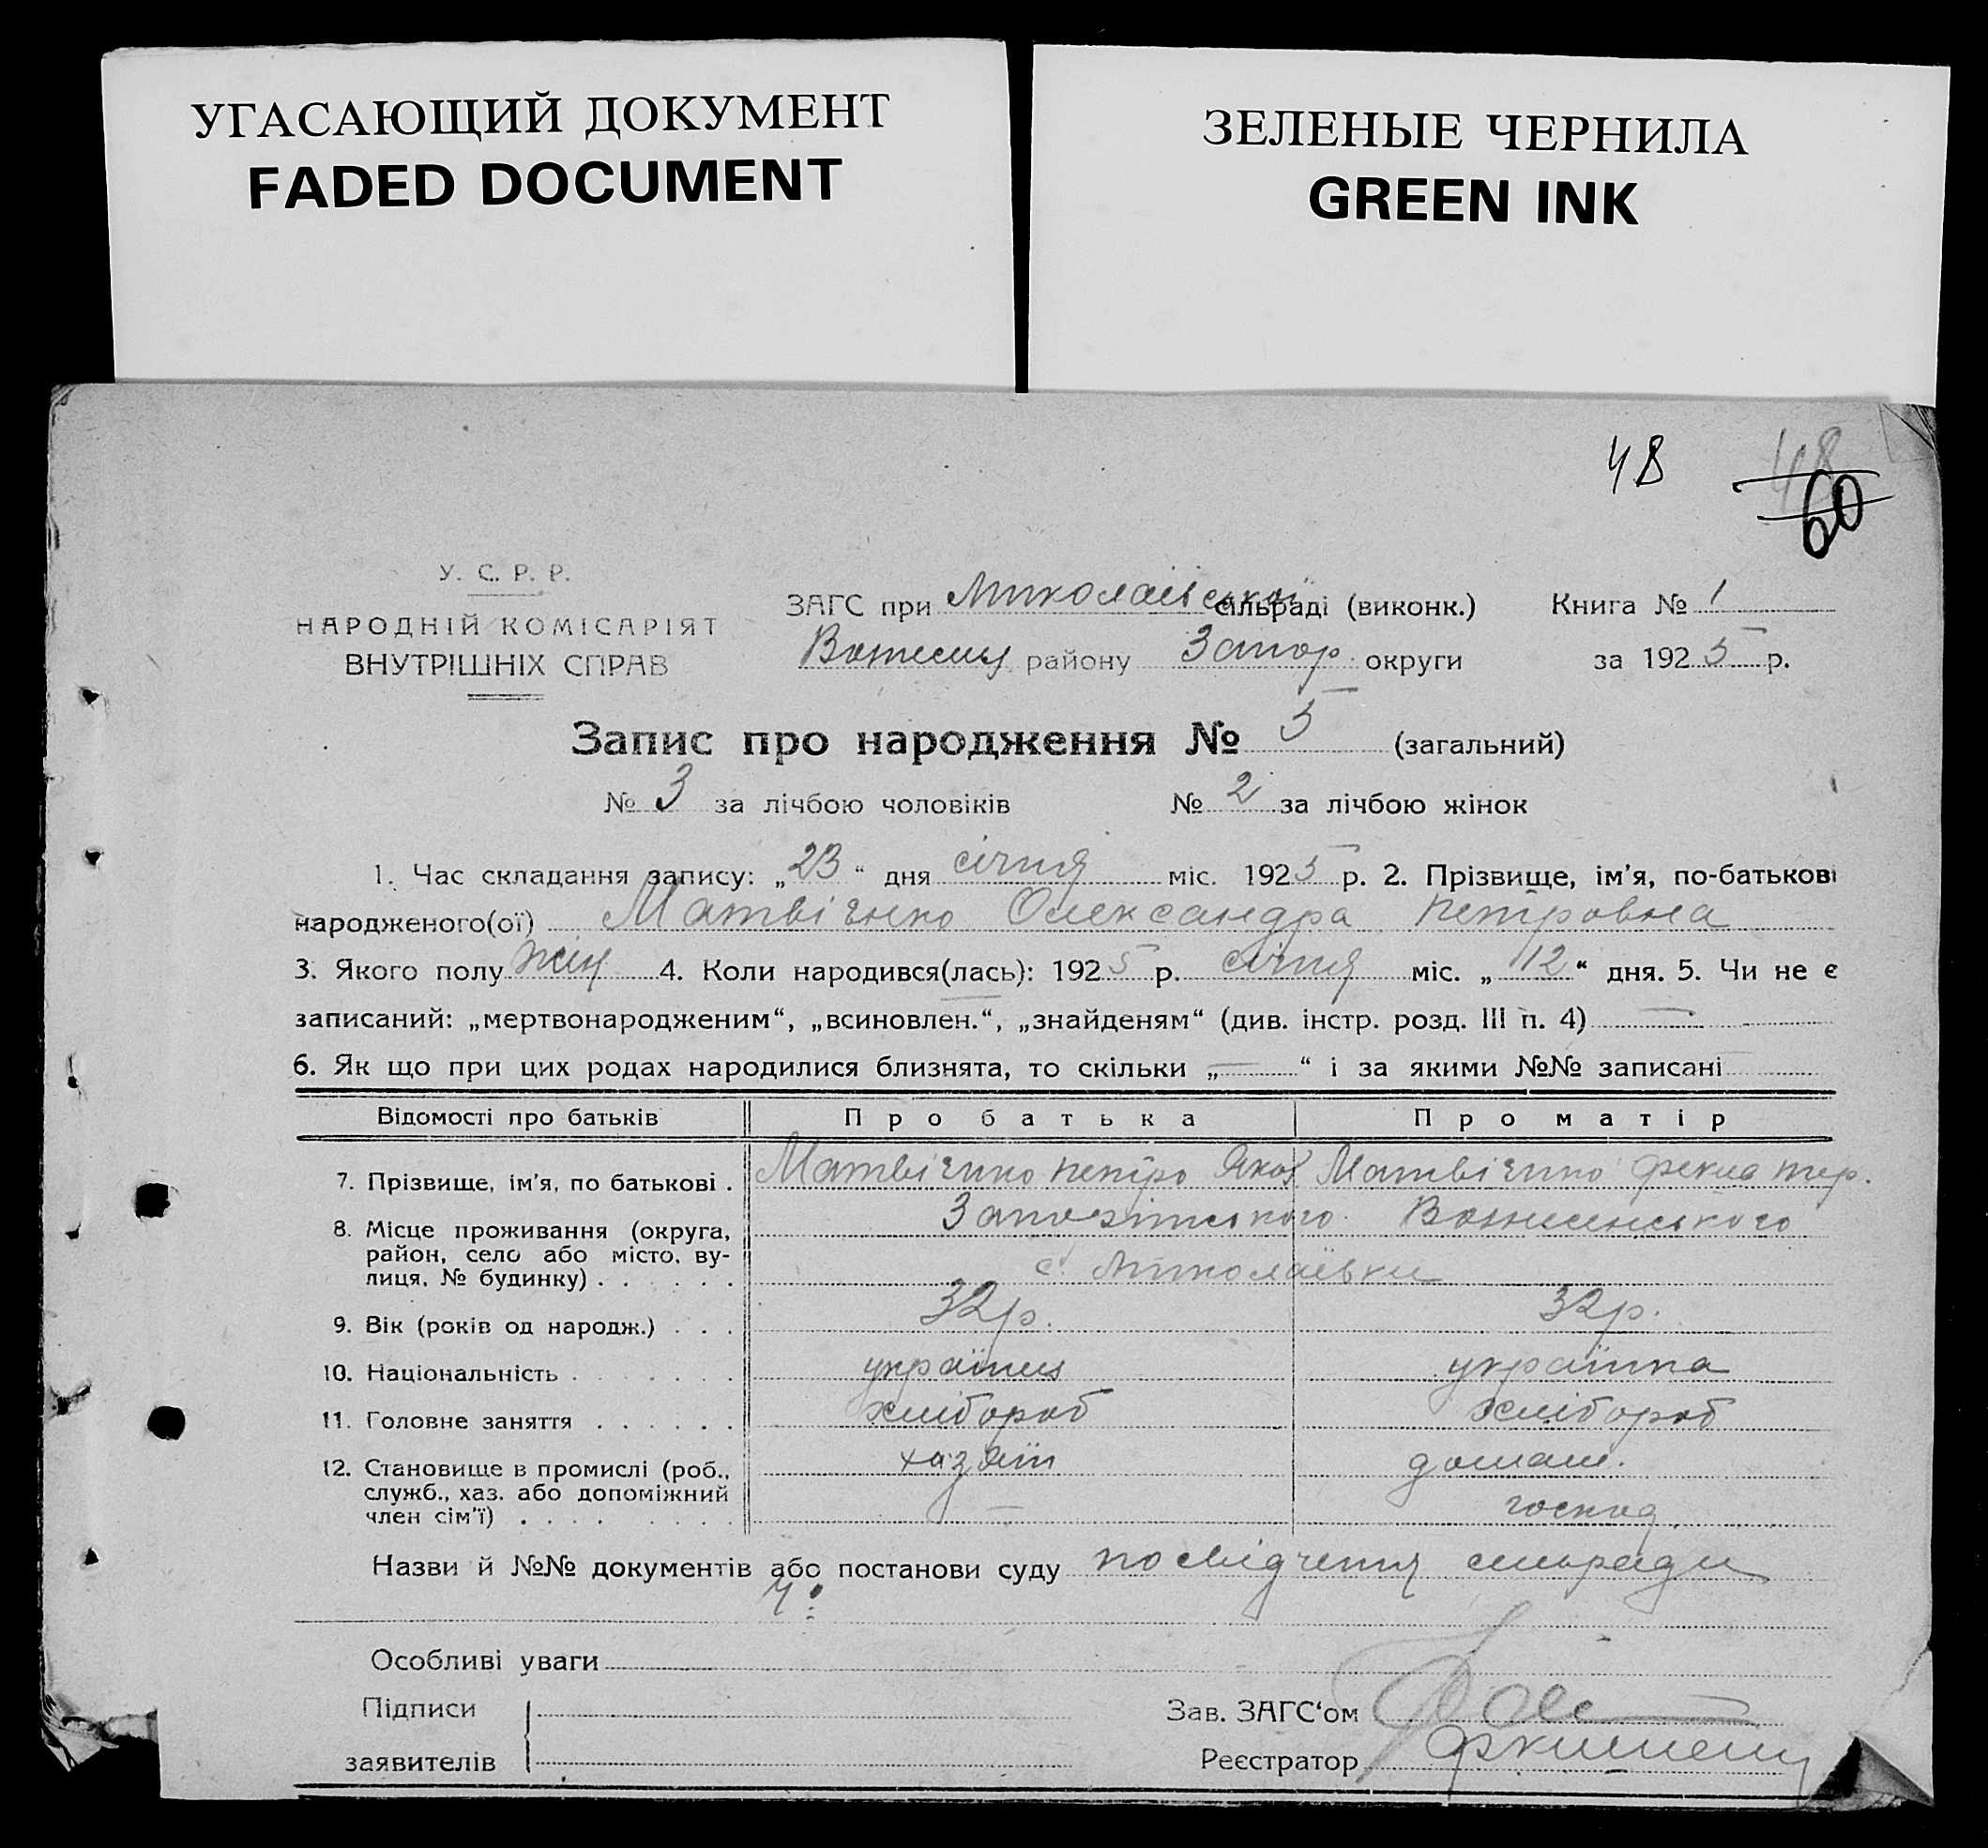 УГАСАЮЩИЙ ДОКУМЕНТ
FADED DOCUMENT
ЗЕЛЕНЫЕ ЧЕРНИЛА
GREEN INK
48 48
60
У. С. Р. Р.
НАРОДНІЙ КОМІСАРІЯТ
ВНУТРІШНІХ СПРАВ
ЗАГС при Миколаївській сільраді (виконк.) Книга № 1
району Запор. округи за 1925 р.
Запис про народження № 5 (загальний)
№ 3 за лічбою чоловіків № 2 за лічбою жінок
1. Час складання запису: „23“ дня січня міс. 1925 р. 2. Прізвище, ім'я, по-батькові
народженого(ої) Матвієнко Олександра Петровна
3. Якого полу жін 4. Коли народився(лась): 1925 р. січня міс. „12“ дня. 5. Чи не є
записаний: „мертвонародженим“, „всиновлен.“, „знайденям“ (див. інстр. розд. III п. 4) —
6. Як що при цих родах народилися близнята, то скільки „—“ і за якими №№ записані
Відомості про батьків Про батька Про матір
7. Прізвище, ім'я, по батькові . Матвієнко Петро Яков Матвієнко Фекла
8. Місце проживання (округа, Запорітського Вознесенського
район, село або місто, ву-
лиця, № будинку) . . . . . . с. Миколаївки
9. Вік (років од народж.) . . . 32 р. 32 р.
10. Національність . . . . . . . українец українка
11. Головне заняття . . . . . . хлібороб хлібороб
12. Становище в промислі (роб., хазяїн домаш.
служб., хаз. або допоміжний
член сім'ї) . . . . . . . . — господ.
Назви й №№ документів або постанови суду посвідчення сільради
Особливі уваги
Підписи
заявителів
Зав. ЗАГС‘ом
Реєстратор